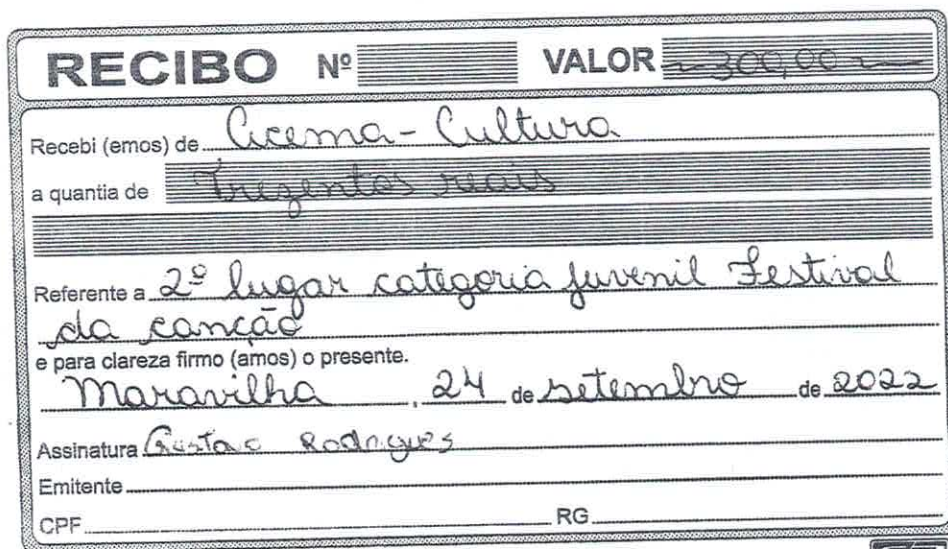 RECIBO Nº VALOR 300,00
Recebi (emos) de Cicema - Cultura
a quantia de Trezentos reais
Referente a 2º lugar categoria juvenil Festival
da canção
e para clareza firmo (amos) o presente.
Maravilha, 24 de setembro de 2022
Assinatura Gustavo Rodrigues
Emitente
CPF RG